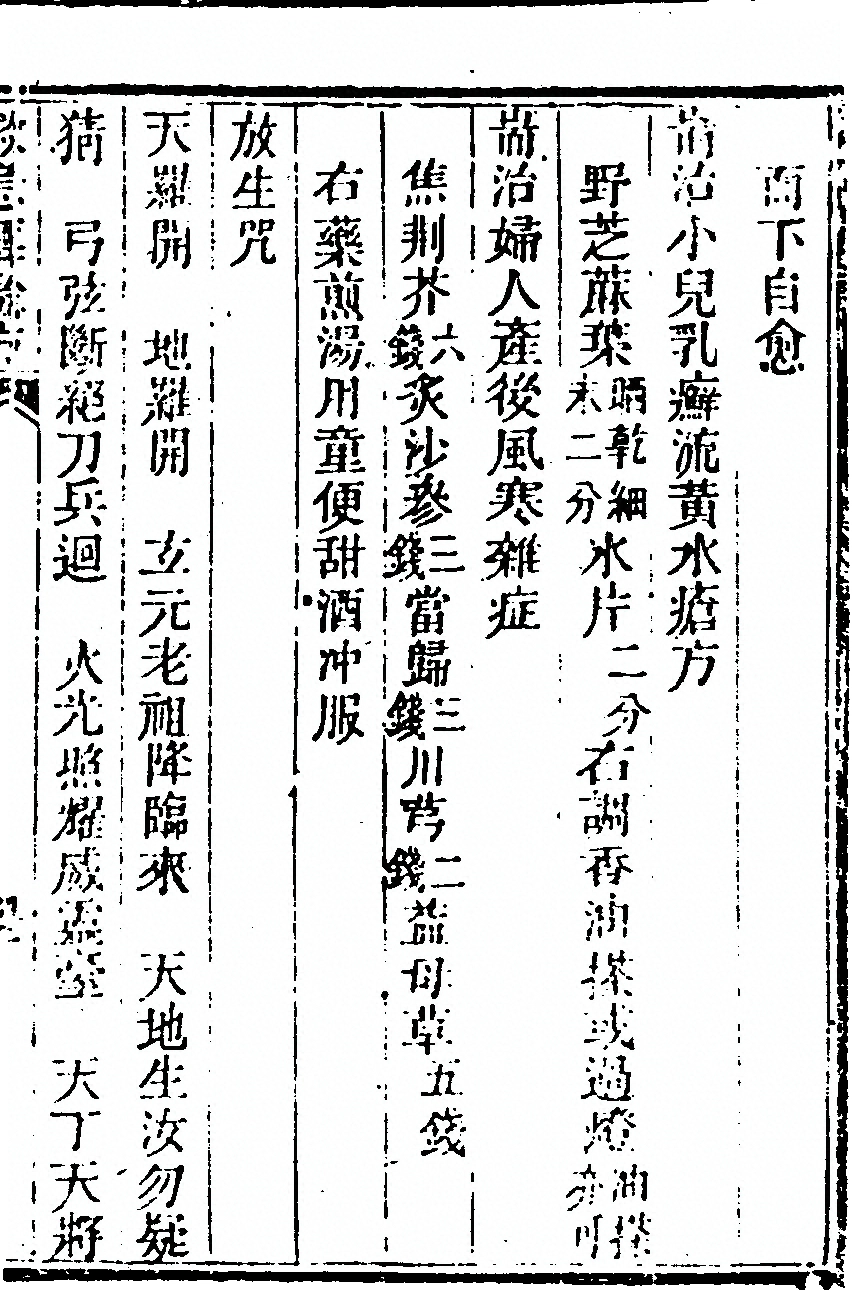 而下自愈
耑治小兒乳癬流黃水瘡方
野芝蔴葉晒乾細末二分冰片二分右調香油搽或過燈油搽亦可
耑治婦人產後風寒雜症
焦荆芥六錢炙沙參三錢當歸三錢川芎二錢益母草五錢
右藥煎湯用童便甜酒冲服
放生咒
天羅開　地羅開　玄元老祖降臨來　天地生汝勿疑
猜　弓弦斷絕刀兵迴　火光照耀成靈臺　天丁天將